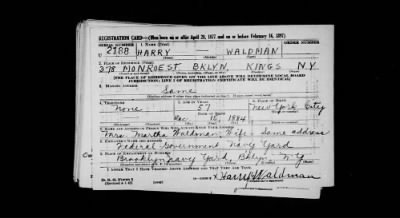 REGISTRATION CARD—(Men born on or after April 28, 1877 and on or before February 16, 1897)
SERIAL NUMBER 1. NAME (Print) ORDER NUMBER
2188 HARRY WALDMAN
2. PLACE OF RESIDENCE (Print)
378 MONROE ST BKLYN, KINGS N.Y
(THE PLACE OF RESIDENCE GIVEN ON THE LINE ABOVE WILL DETERMINE LOCAL BOARD
JURISDICTION; LINE 2 OF REGISTRATION CERTIFICATE WILL BE IDENTICAL)
3. MAILING ADDRESS
Same
4. TELEPHONE 5. AGE IN YEARS 6. PLACE OF BIRTH
None 57 New York City
DATE OF BIRTH
Dec 15, 1884
7. NAME AND ADDRESS OF PERSON WHO WILL ALWAYS KNOW YOUR ADDRESS
Mrs. Martha Waldman, Wife, Same address
8. EMPLOYER'S NAME AND ADDRESS
Federal Government, Navy Yard
9. PLACE OF EMPLOYMENT OR BUSINESS
Brooklyn Navy Yard Bklyn N-Y
I AFFIRM THAT I HAVE VERIFIED ABOVE ANSWERS AND THAT THEY ARE TRUE.
Harry Waldman